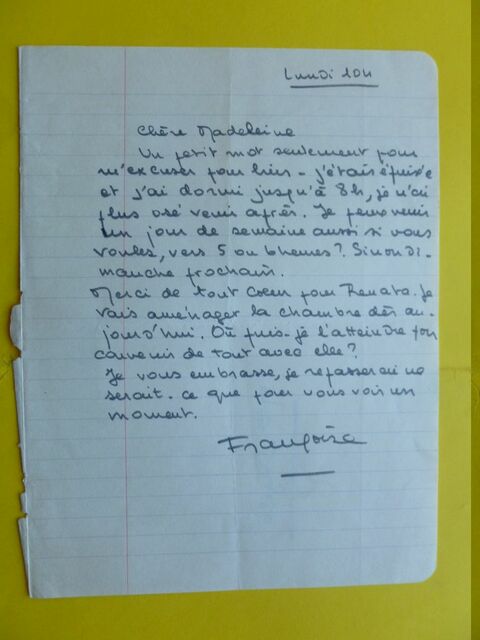 Lundi 10H
Chère Madeleine
Un petit mot seulement pour
m'excuser pour hier - j'étais épuisée
et j'ai dormi jusqu'à 8h, je n'ai
plus osé venir après. Je peux venir
un jour de semaine aussi si vous
voulez, vers 5 ou 6 heures ? Sinon di-
manche prochain.
Merci de tout coeur pour Renata. Je
vais aménager la chambre dès au-
jourd'hui. Où puis-je l'atteindre pour
convenir de tout avec elle ?
Je vous embrasse, je repasserai ne
serait-ce que pour vous voir un
moment.
Françoise